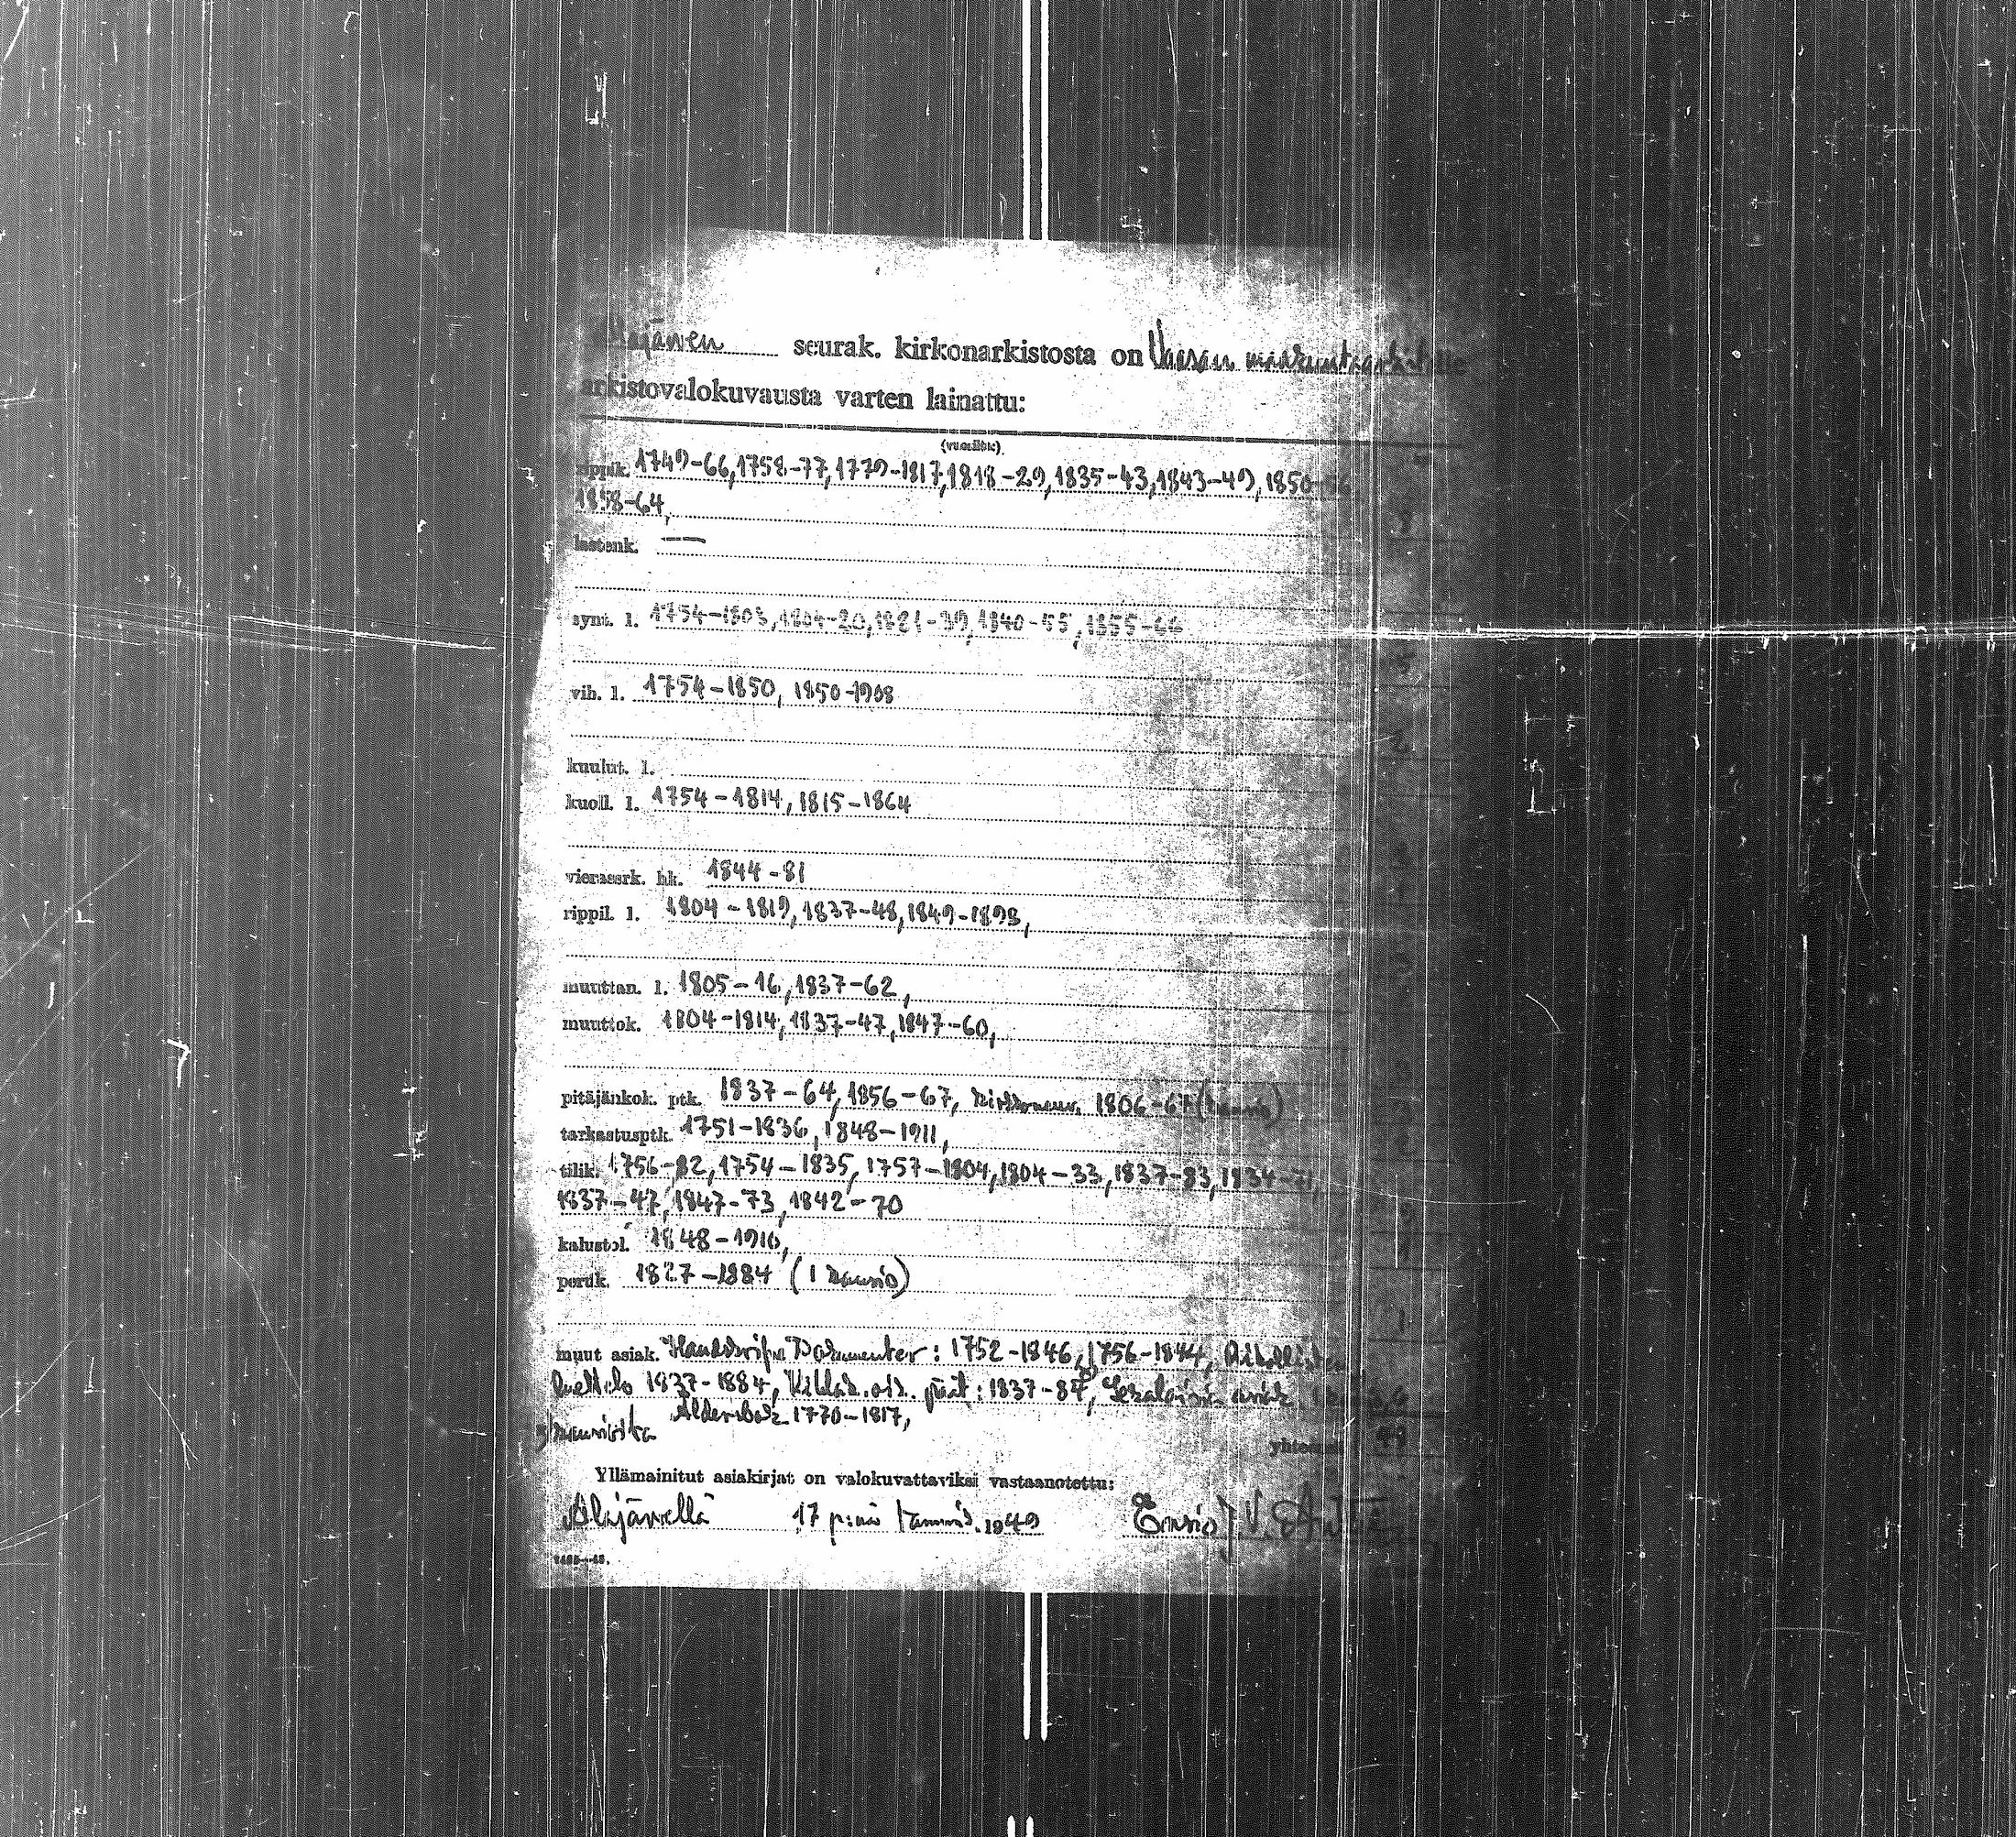 Alajärven seurak. kirkonarkistosta on Vaasan maakunta-arkistoon
arkistovalokuvausta varten lainattu:
(vuosiluk.)
rippik. 1749-66, 1758-77, 1779-1817, 1818-29, 1835-43, 1843-49, 1850-56
1858-64, 8
lastenk. —
synt. l. 1754-1803, 1804-20, 1821-39, 1840-55, 1855-66
5
vih. l. 1754-1850, 1850-1908
2
kuulut. l.
kuoll. l. 1754-1814, 1815-1864
vierassrk. hk. 1844-81
rippil. l. 1804-1819, 1837-48, 1849-1898,
muuttan. l. 1805-16, 1837-62,
muuttok. 1804-1814, 1837-47, 1847-60,
pitäjänkok. ptk. 1837-64, 1856-67, 1806-67
tarkastusptk. 1751-1836, 1848-1911,
tilik. 1756-82, 1754-1835, 1757-1804, 1804-33, 1837-83, 1834-71,
1837-47, 1847-73, 1842-70
kalustol. 1848-1910, 1
peruk. 1827-1884 (1 kansio)
1
muut asiak. Dokumenter: 1752-1846, 1756-1844,
luettelo 1837-1884, 1837-84, asiak.
3 kansiota Åldersbok 1770-1817,
yhteensä
Yllämainitut asiakirjat on valokuvattaviksi vastaanotettu:
Alajärvellä 17 p:nä tammik. 1949 Ensio J. V.